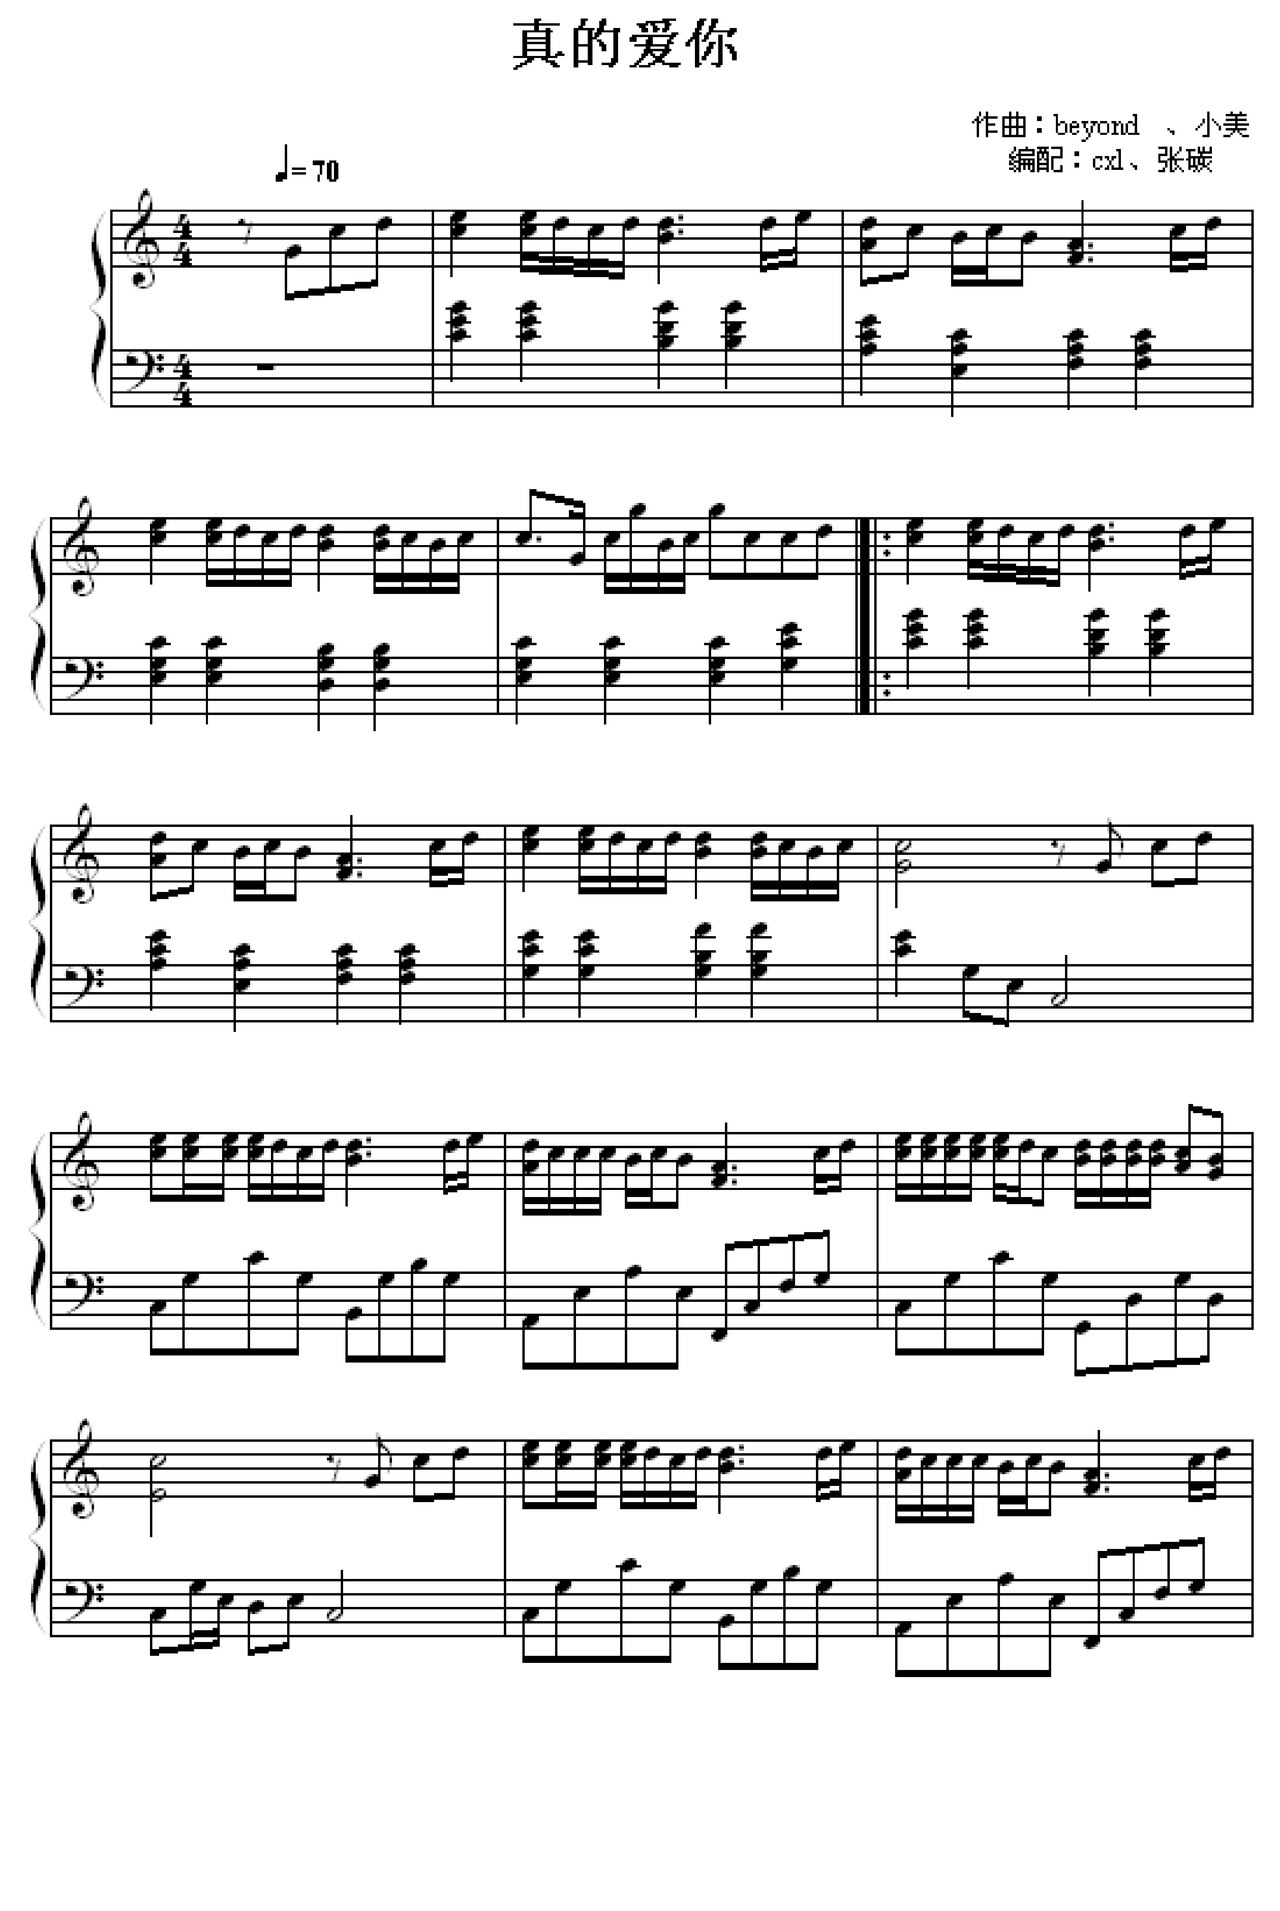 真的爱你
作曲：beyond 、小美
编配：cxl、张碳
♩= 70
4
4
4
4